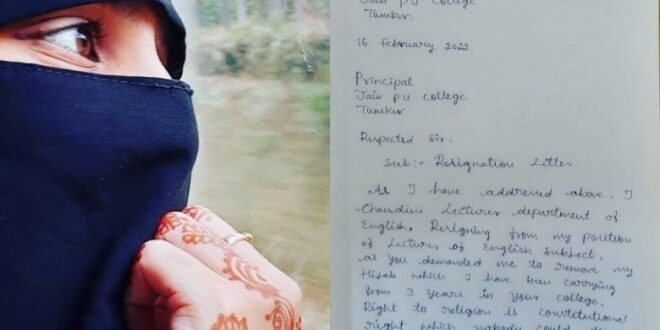 Jain PU College
Tumkur.
16 February 2022.
Principal
Jain PU College
Tumkur
Respected Sir.
Sub:- Resignation Letter.
As I have addressed above, I
Chandini Lecturer department of
English, Resigning from my position
of Lecturer of English Subject.
as you demanded me to remove my
Hijab which I have been carrying
from 3 years in your college.
Right to religion is constitutional
right which nobody